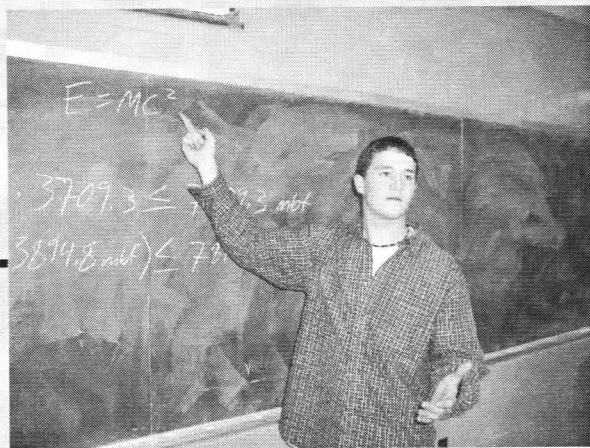 E=MC²
. 3709.3 ≤ 9.3 mbf
3894.8 mbf) ≤ 7